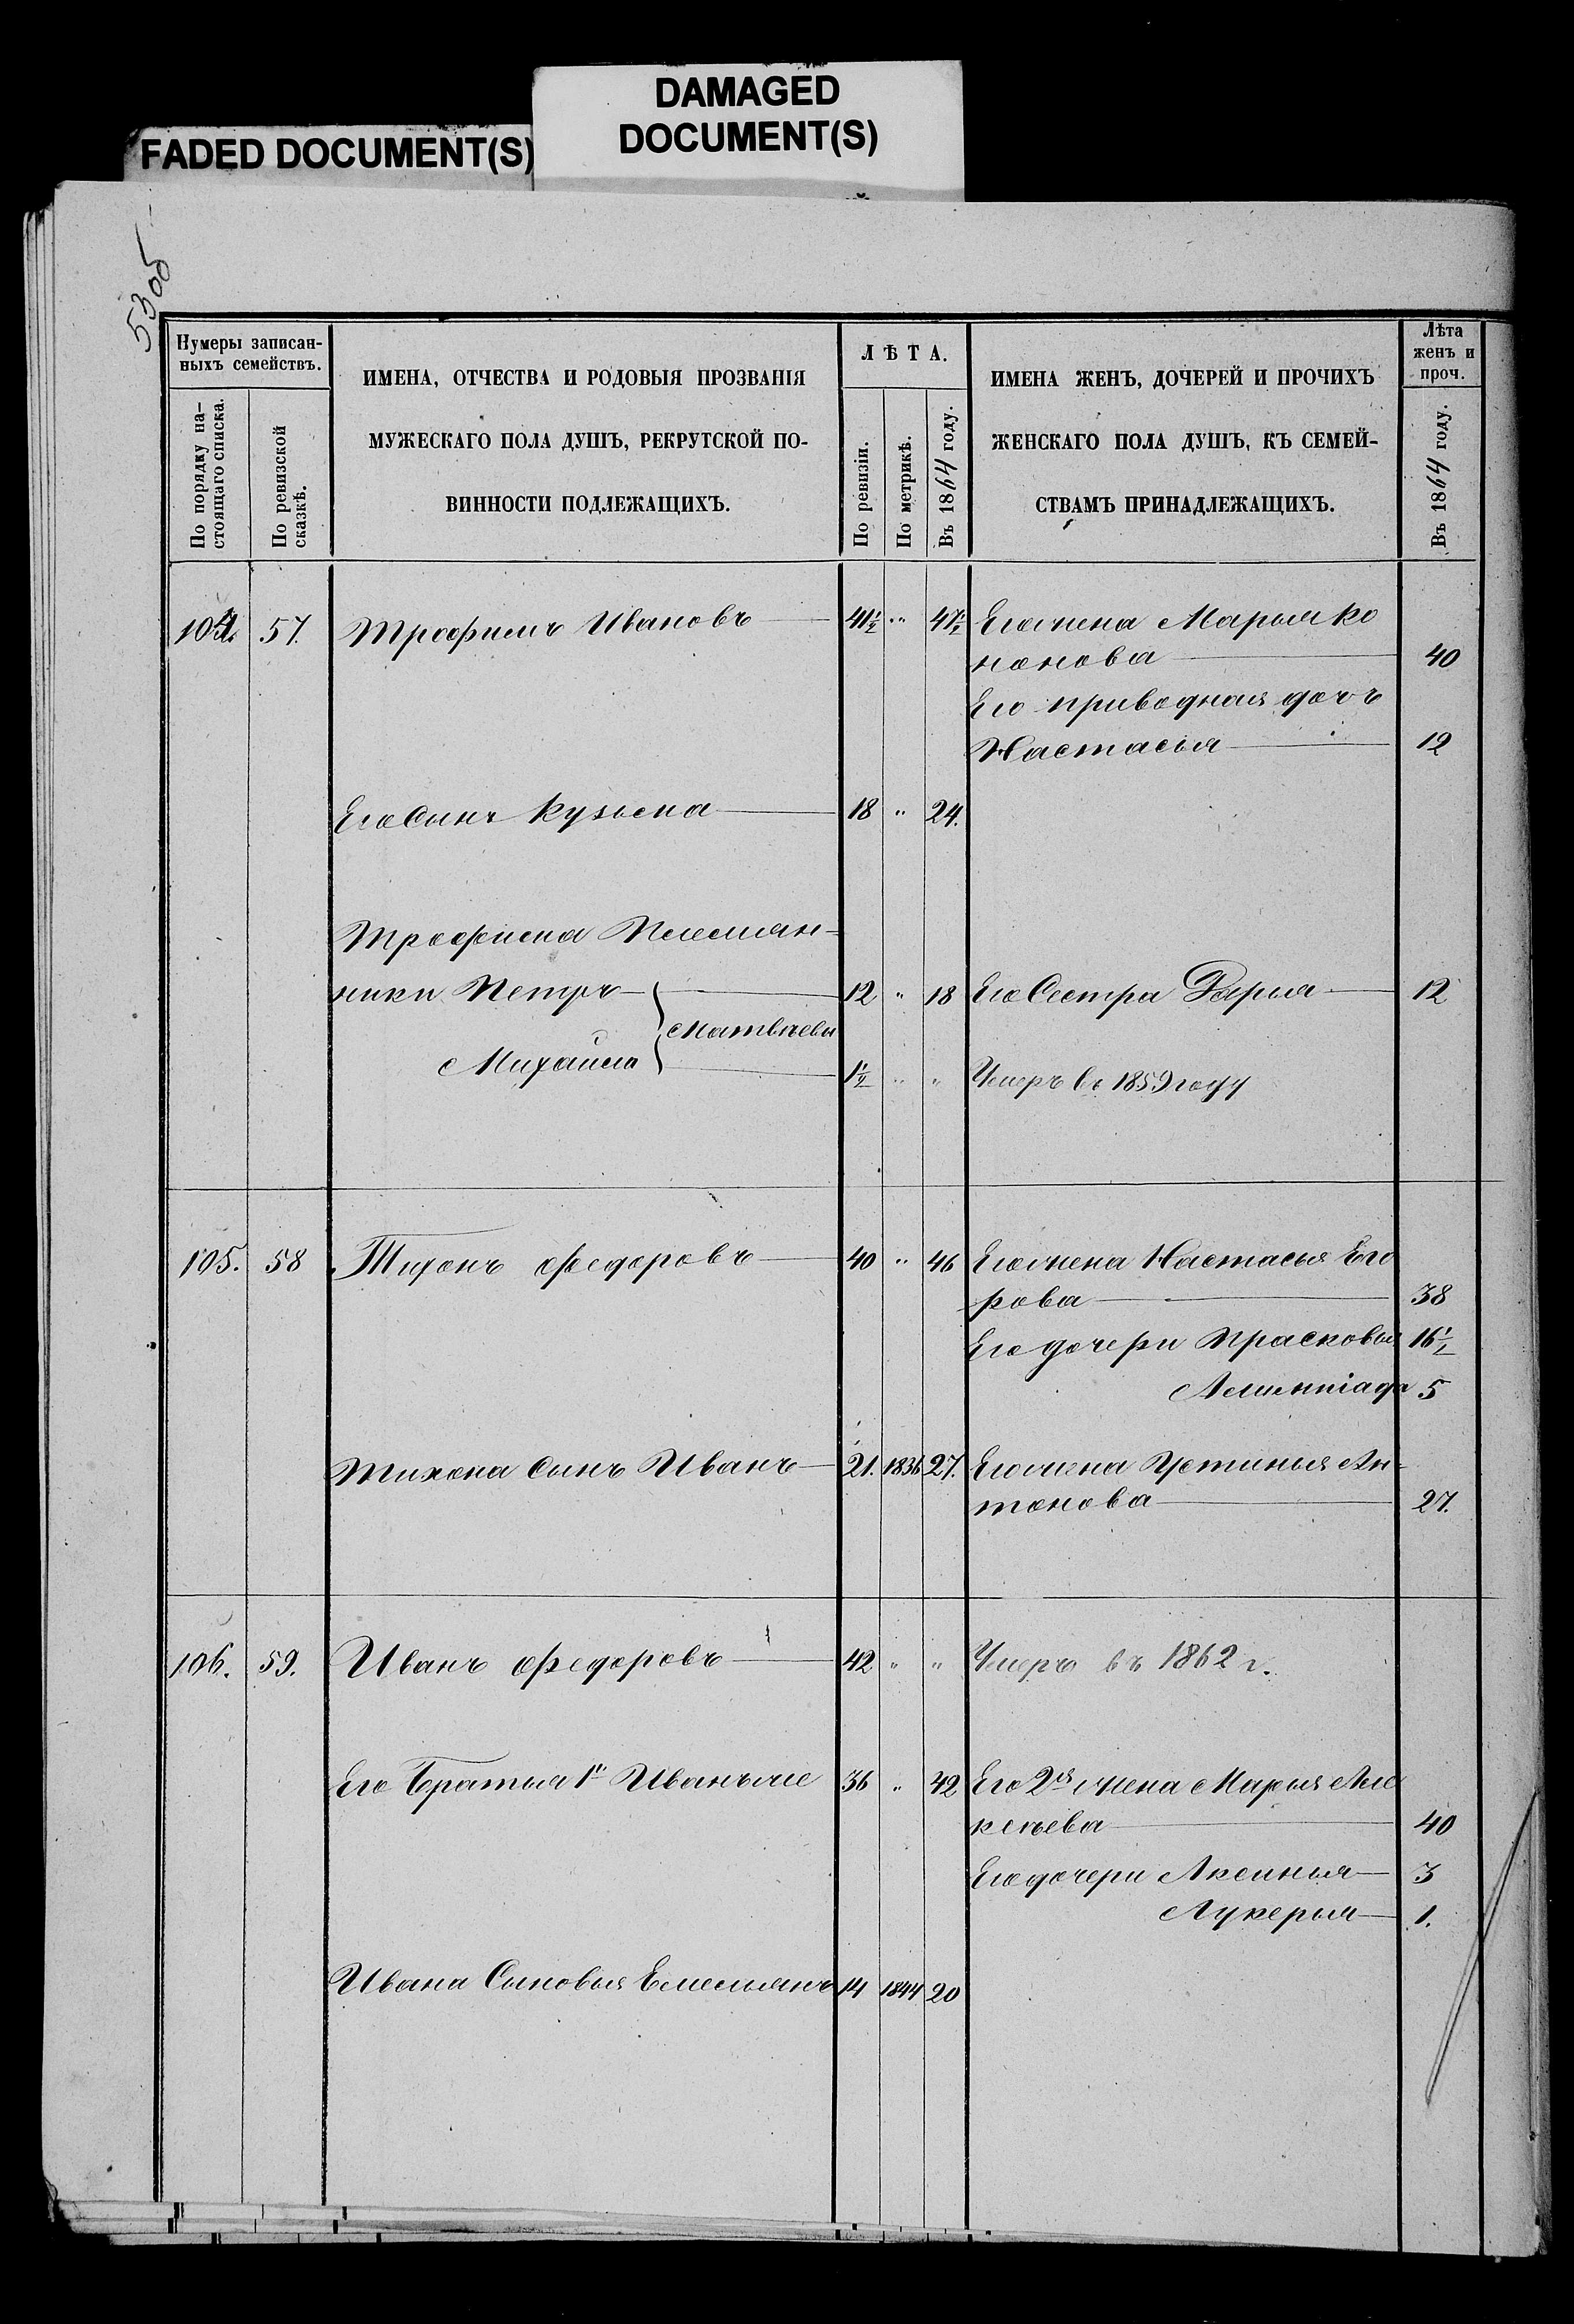 FADED DOCUMENT(S)
DAMAGED
DOCUMENT(S)
530об
Нумеры записан-
ныхъ семействъ.
По порядку на-
стоящаго списка.
По ревизской
сказкѣ.
ИМЕНА, ОТЧЕСТВА И РОДОВЫЯ ПРОЗВАНІЯ
МУЖЕСКАГО ПОЛА ДУШЪ, РЕКРУТСКОЙ ПО-
ВИННОСТИ ПОДЛЕЖАЩИХЪ.
ЛѢТА.
По ревизіи.
По метрикѣ.
Въ 1864 году.
ИМЕНА ЖЕНЪ, ДОЧЕРЕЙ И ПРОЧИХЪ
ЖЕНСКАГО ПОЛА ДУШЪ, КЪ СЕМЕЙ-
СТВАМЪ ПРИНАДЛЕЖАЩИХЪ.
Лѣта
женъ и
проч.
Въ 1864 году.
104. 57. Трофимъ Ивановъ 41½ " 47½ Его жена Марья Ко
нонова 40
Его приводная дочь
Настасья 12
Его Сынъ Кузьма 18 " 24.
Трофима Племян-
ники Петръ 12 " 18 Его Сестра Дарья 12
Матвѣевы
Михайла 1½ " " Умеръ въ 1859 году
105. 58 Тихонъ Федоровъ 40 " 46 Его жена Настасья Его
рова 38
Его дочери Прасковья 16½
Алимпіада 5
Тихона Сынъ Иванъ 21. 1836 27. Его жена Устинья Ан-
тонова 27.
106. 59. Иванъ Федоровъ 42 " " Умеръ въ 1862 г.
Его Братья 1й Иванъ же 36 " 42 Его 2я жена Марья Але
ксѣева 40
Его дочери Аксинья 3
Лукерья 1.
Ивана Сыновья Емельянъ 14 1844 20